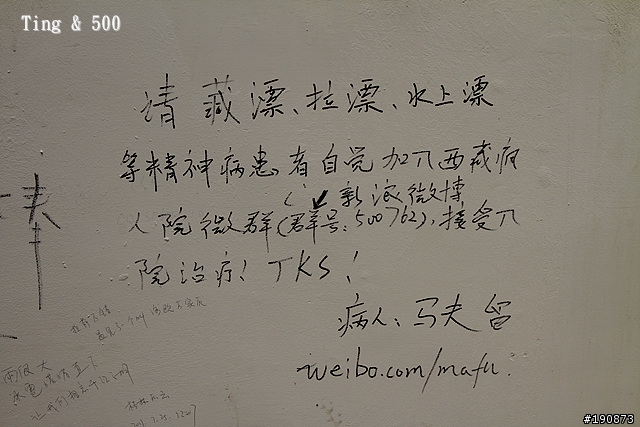 Ting & 500
请藏漂、拉漂、水上漂
等精神病患者自觉加入西藏疯
新浪微博
人院微群(群号:500762),接受入
院治疗! TKS!
病人:马夫 留
weibo.com/mafu.
两假大
#190873